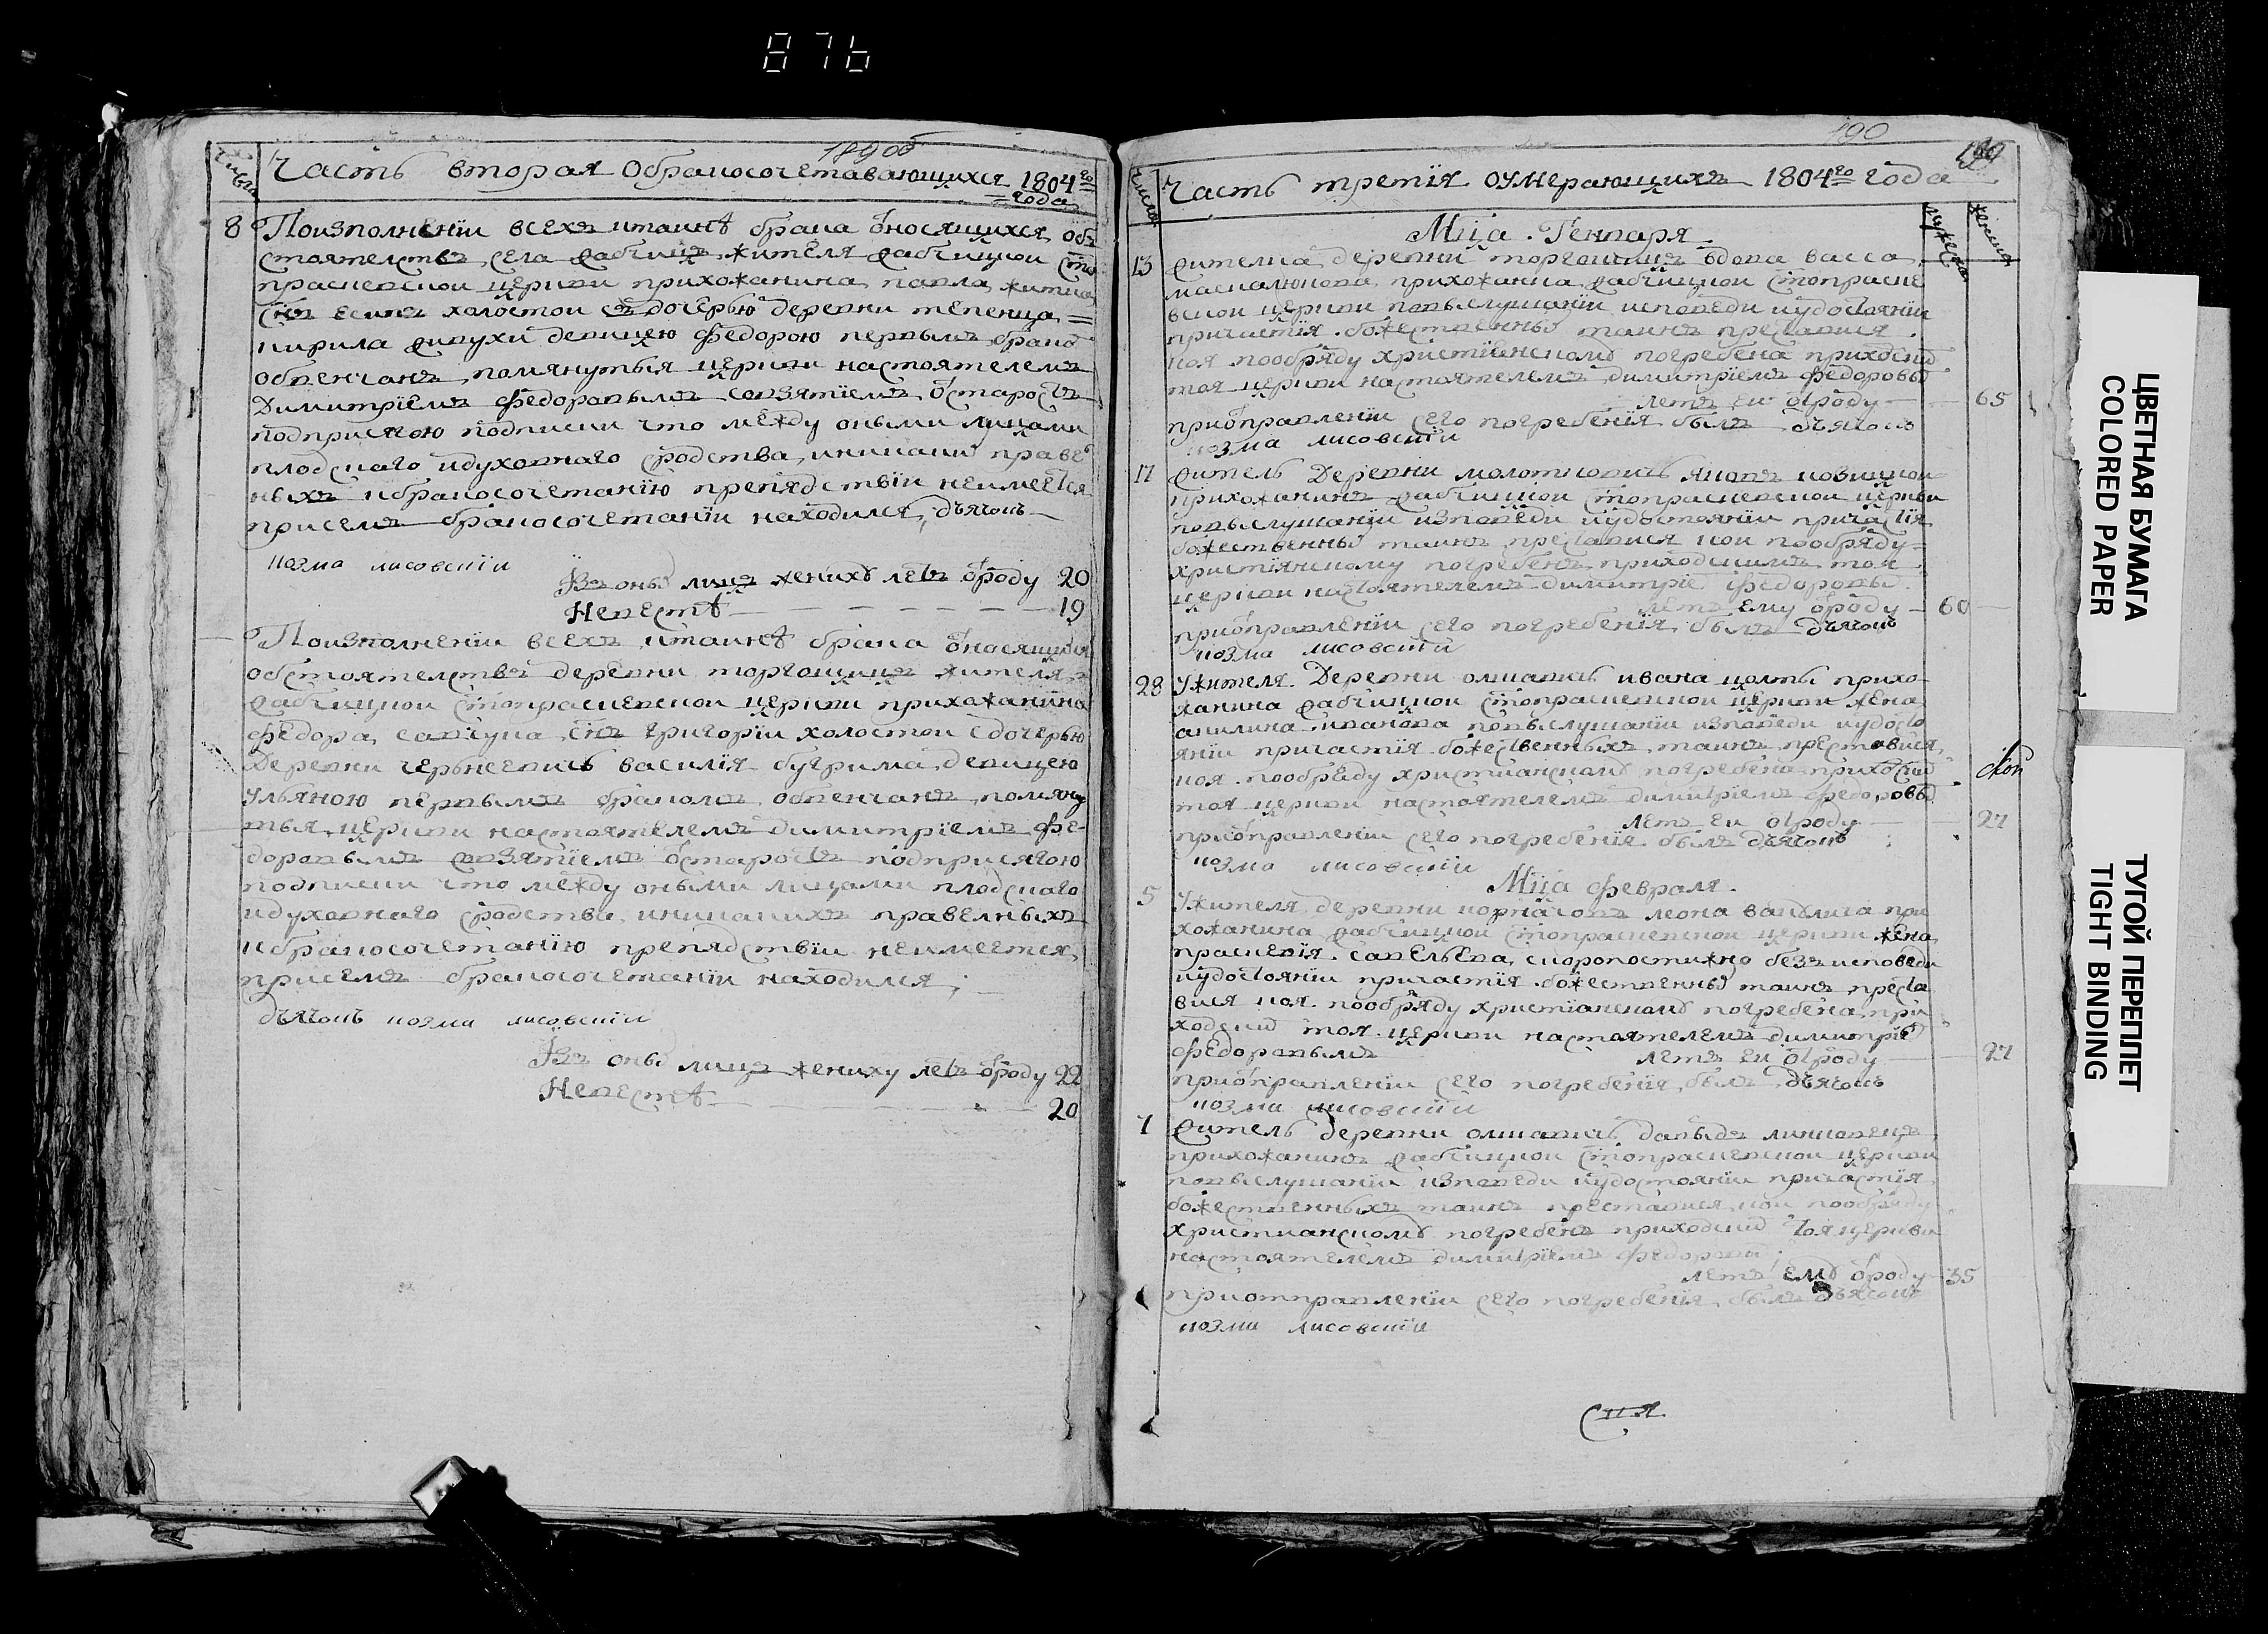 876
189об
числа
Часть вторая обракосочетавающихся 1804го
года
8 Поизполненїи всехъ ктаинѣ брака ѿносящихся обь
стоятелствъ села рабчицъ жителя рабчицкои сто
праскевскои церкви прихожанина павла житка
снъ есипъ холостои здочерью деревни тепенца
кирила деицею федорою первымъ брако
обвенчанъ помянутыя церкви настоятелемъ
Димитрїемъ федоровымъ совзятїемъ ѿстаростъ
подприсягою подписки что между оными лицами
плодскаго идуховнаго сродства, иникаки праве
ныхъ кбракосочетанїю препядствїи неимеется
присемъ бракосочетанїи находился, дьячокъ
козма лисовскїи
Въ оны лицъ женихъ летъ ѿроду 20
Невестѣ 19
Поизполненїи всехъ ктаинѣ брака ѿносящихся
обстоятелствъ деревни торгошицъ жителя
рабчицкои стопраскевскои церкви прихожанина
федора савчука снъ григорїи холостои сдочерью
Деревни черьневичь василїя бугрима девицею
ульяною первымъ бракомъ обвенчанъ помяну
тыя церкви настоятелемъ димитрїемъ фе-
доровымъ совзятїемъ ѿстаростъ подприсягою
подписки что между оными лицами плодскаго
идуховнаго сродства иникакихъ правелныхъ
кбракосочетанїю препядствїи неимеется
присемъ бракосочетанїи находился;
дьячокъ козма лисовскїи
Въ оны лицъ жениху летъ ѿроду 22
Невестѣ 20
190
190
число
Часть третїя оумерающихъ 1804го года
мужеска
женска
Мца Генваря
13 жителка деревни торгошицъ вдова васса
маскалюкова прихожанка рабчицкои стопраске
вскои церкви повыслушанїи исповеди иудостоянїи
причастїя божественны таинъ преставися
коя пообряду христїянскому погребена приходски
тоя церкви настоятелемъ димитрїемъ федоровы
летъ еи ѿроду 65
приѿправленїи сего погребенїя былъ дьячокъ
козма лисовскїи
17 житель Деревни молотковичь яковъ
прихожанинъ рабчицкои стопраскевскои церкви
повыслушанїи изповеди иудостоянїи причастїя
божественны таинъ преставися кои пообряду
христїянскому погребенъ приходскимъ тоя
церкви настоятелемъ димитрїе федоровы
летъ ему ѿроду 60
приѿправленїи сего погребенїя былъ дьячокъ
козма лисовскїи
28 Ужителя Деревни олшанъ ивана колты прихо
жанина рабчицкои стопраскевскои церкви жена
акилина иванова повыслушанїи изповеди иудосто
янїи причастїя божественныхъ таинъ преставися,
коя пообряду христианскому погребена приходски
тоя церкви настоятелемъ димитрїемъ федоровы
летъ еи ѿроду 27
приѿправленїи сего погребенїя былъ дьячокъ
козма лисовскїи
Мца февраля
5 Ужителя деревни леона при
хожанина рабчицкои стопраскевскои церкви жена
праскевїя савельева, скоропостижно безъ исповеди
иудостоянїи причастїя божественны таинъ преста
вися коя пообряду христїянскому погребена при
ходски тоя церкви настоятелемъ димитрїе
федоровымъ летъ еи ѿроду 27
приѿправленїи сего погребенїя былъ дьячокъ
козма лисовскїи
7 житель деревни олшанъ давыдъ
прихожанинъ рабчицкои стопраскевскои церкви
повыслушанїи изповеди иудостоянїи причастїя
божественныхъ таинъ преставися кои пообряду
христианскому погребенъ приходски тоя церкви
настоятелемъ димитрїемъ федоровы
летъ ему ѿроду 35
приотправленїи сего погребенїя былъ дьячокъ
козма лисовскїи
ЦВЕТНАЯ БУМАГА
COLORED PAPER
ТУГОЙ ПЕРЕПЛЕТ
TIGHT BINDING